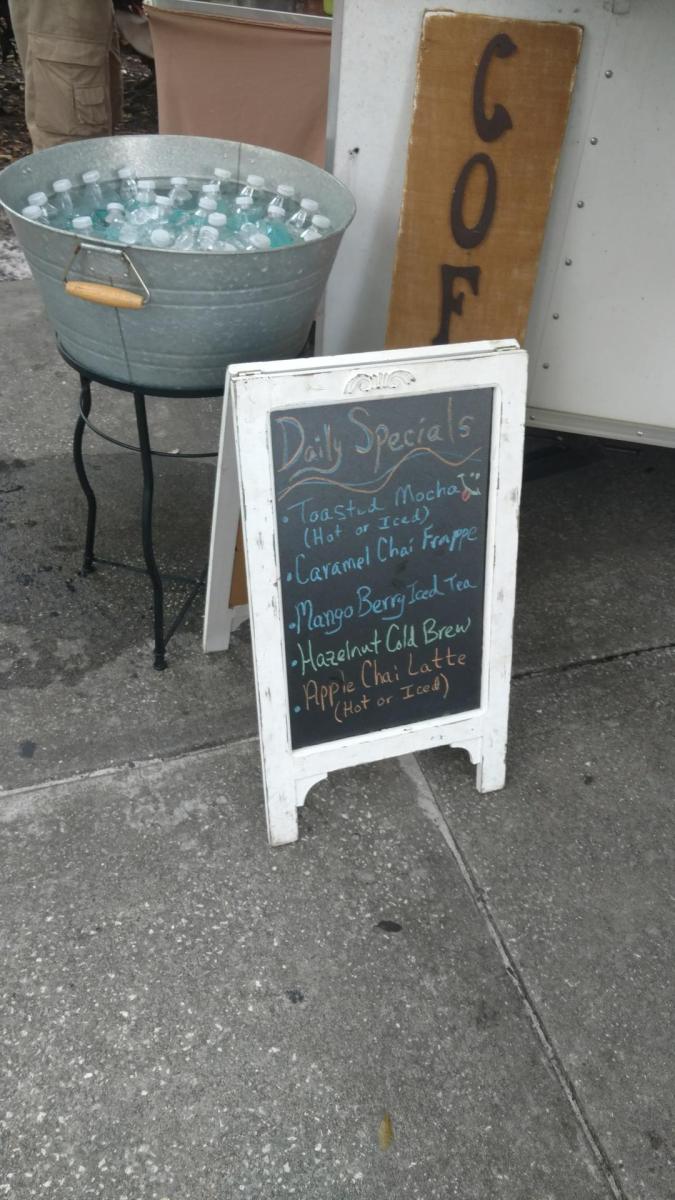 COF
Daily Specials
• Toasted Mocha
(Hot or Iced)
• Caramel Chai Frappe
• Mango Berry Iced Tea
• Hazelnut Cold Brew
• Apple Chai Latte
(Hot or Iced)